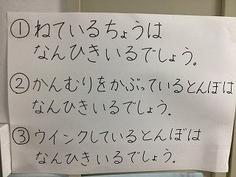 ①ねているちょうは
なんびきいるでしょう。
②かんむりをかぶっているとんぼは
なんびきいるでしょう。
③ウインクしているとんぼは
なんびきいるでしょう。